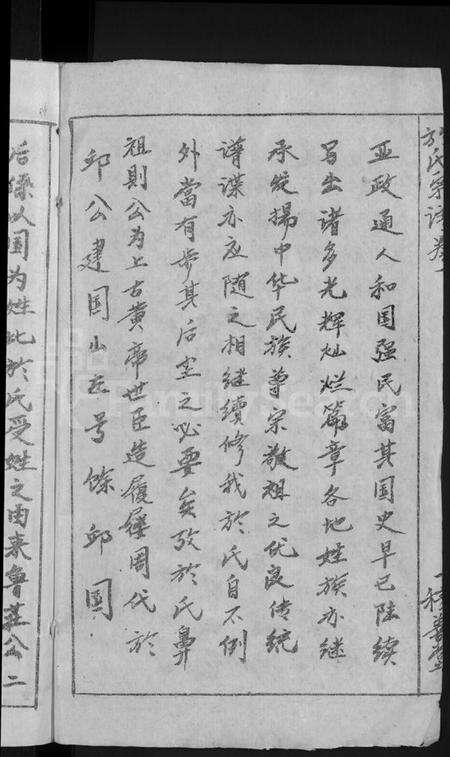 於氏宗譜卷一
一積善堂
亚政通人和国强民富其国史早已陆续
写出诸多光辉灿烂篇章各地姓族亦继
承绽揚中华民族尊宗敬祖之优良传统
谱谍亦应随之相继续修我於氏自不例
外當有步其后尘之必要矣攷於氏鼻
祖則公为上古黄帝世臣造履屦周代於
邱公建国山左号馀邱国
后係以国为姓此於氏受姓之由来魯莊公二